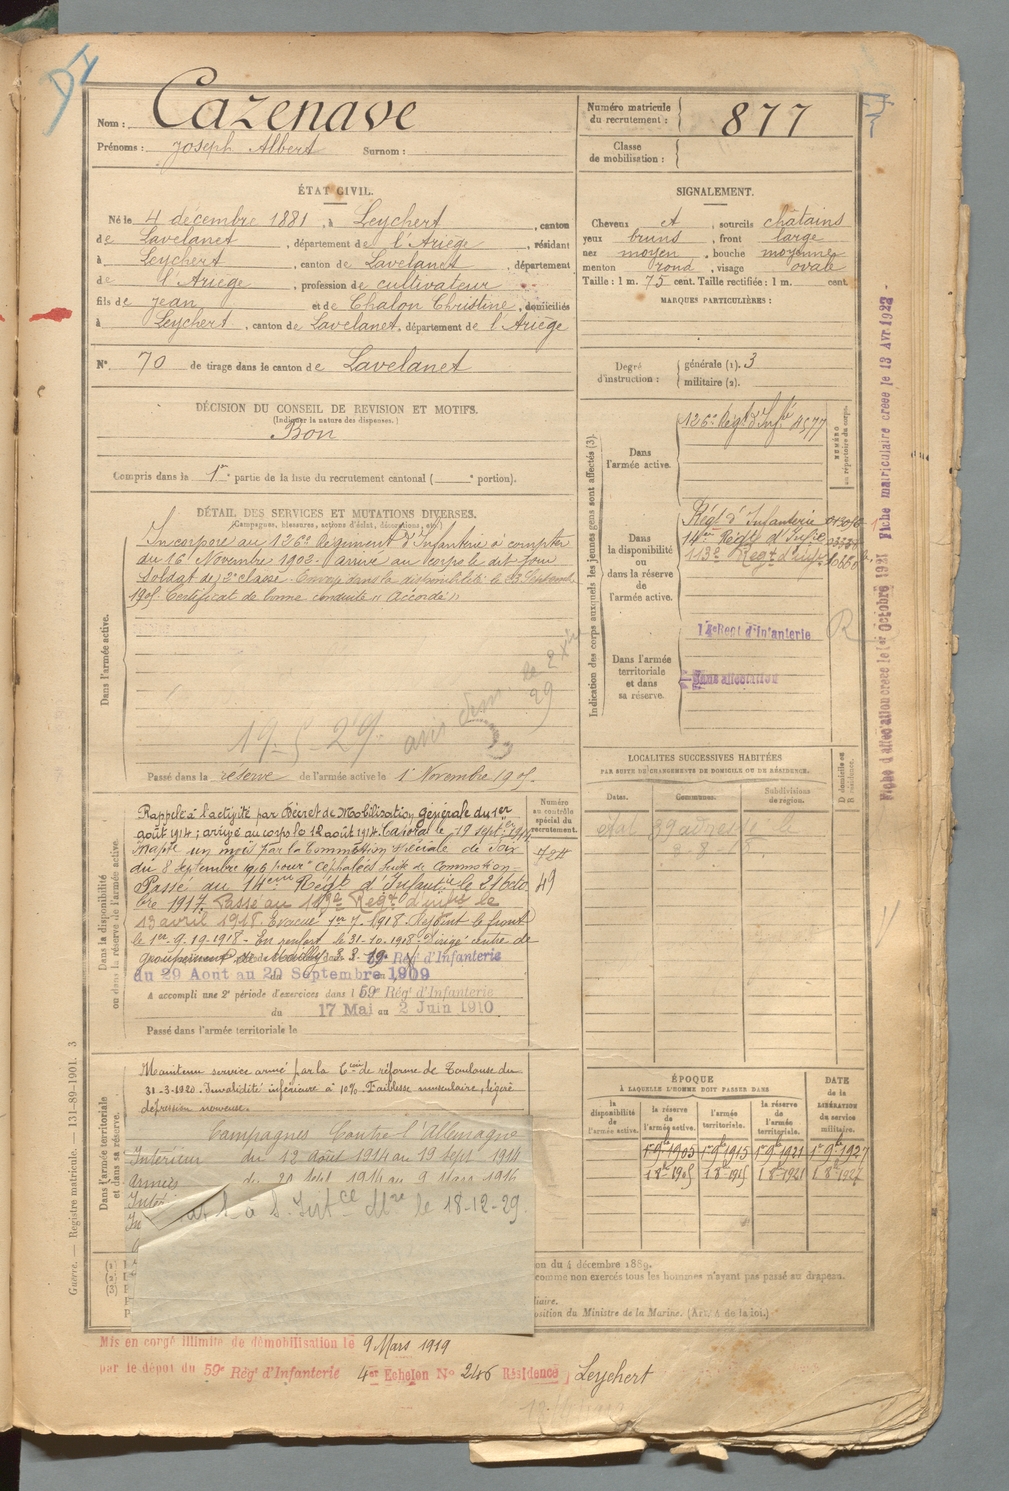 Nom : Cazenave
Prénoms : Joseph Albert Surnom :
Numéro matricule du recrutement : 877
Classe de mobilisation :
ÉTAT CIVIL.
Né le 4 décembre 1881, à Leychert, canton
de Lavelanet, département de l'Ariège, résidant
à Leychert, canton de Lavelanet, département
de l'Ariège, profession de cultivateur
fils de Jean et de Chalon Christine, domiciliés
à Leychert, canton de Lavelanet, département de l'Ariège
N° 70 de tirage dans le canton de Lavelanet
SIGNALEMENT.
Cheveux et, sourcils châtains
yeux bruns, front large
nez moyen, bouche moyenne
menton rond, visage ovale
Taille : 1 m. 75 cent. Taille rectifiée : 1 m. cent.
MARQUES PARTICULIÈRES :
Degré d'instruction : générale (1). 3
militaire (2).
DÉCISION DU CONSEIL DE REVISION ET MOTIFS.
(Indiquer la nature des dispenses.)
Bon
Compris dans la 1re partie de la liste du recrutement cantonal ( e portion).
DÉTAIL DES SERVICES ET MUTATIONS DIVERSES.
(Campagnes, blessures, actions d'éclat, décorations, etc.)
Dans l'armée active.
Incorporé au 126e Régiment d'Infanterie à compter
du 16 Novembre 1902. Arrivé au corps le dit jour
Soldat de 2e classe. Envoyé dans la disponibilité le 23 Septembre
1905. Certificat de bonne conduite "Accordé"
19-5-29.
Passé dans la réserve de l'armée active le 1 Novembre 1905.
Indication des corps auxquels les jeunes gens sont affectés (3).
NUMÉRO au répertoire du corps.
Dans l'armée active.
126e Régt d'Infie 1577
Dans la disponibilité ou dans la réserve de l'armée active.
Régt d'Infanterie
14e Régt d'Infie
113e Regt d'infie
Dans l'armée territoriale et dans sa réserve.
14e Regt d'Infanterie
R
Sans affectation
Fiche d'affectation créée le 1er Octobre 1921 Fiche matriculaire créée le 13 Avr. 1922
LOCALITÉS SUCCESSIVES HABITÉES
PAR SUITE DE CHANGEMENTS DE DOMICILE OU DE RÉSIDENCE.
D domicile ou R résidence.
Dates. Communes. Subdivisions de région.
Dans la disponibilité ou dans la réserve de l'armée active.
Numéro au contrôle spécial du recrutement.
724
49
Rappelé à l'activité par Décret de Mobilisation Générale du 1er
août 1914 ; arrivé au corps le 12 août 1914. Caporal le 19 septbre 1914
Inapte un mois par la Commission spéciale de Foix
du 8 septembre 1916 pour "Céphalées suite de Commotion"
Passé au 14eme Régt d'Infanie le 21 octo
bre 1917. Passé au 113e Regt d'infie le
13 avril 1918. Evacué 1er 7. 1918. Rejoint le front
le 1er. 9. 19-1918. En renfort le 31-10. 1918. Dirigé centre de
groupement de Mailly
Régt d'Infanterie
du 29 Aout au 20 Septembre 1909
A accompli une 2e période d'exercices dans l 59e Régt d'Infanterie
du 17 Mai au 2 Juin 1910
Passé dans l'armée territoriale le
Dans l'armée territoriale et dans sa réserve.
Maintenu service armé par la 6e con de réforme de Toulouse du
31-3-1920. Invalidité inférieure à 10% Faiblesse musculaire, légère
dépression nerveuse.
Campagnes Contre l'Allemagne
Intérieur du 12 août 1914 au 19 sept 1914
Armées du 20 sept 1914 au 9 Mars 1916
le 18-12-29.
ÉPOQUE
À LAQUELLE L'HOMME DOIT PASSER DANS
DATE de la LIBÉRATION du service militaire.
la disponibilité de l'armée active.
la réserve de l'armée active.
l'armée territoriale.
la réserve de l'armée territoriale.
1er 9bre 1905 1er 9bre 1915 1er 9bre 1921 1er 9bre 1927
1 8bre 1905 1 8bre 1915 1 8bre 1921 1 8bre 1927
(1)
(2)
(3)
on du 4 décembre 1889.
comme non exercés tous les hommes n'ayant pas passé au drapeau.
iaire.
position du Ministre de la Marine. (Art. 4 de la loi.)
Guerre. — Registre matricule. — 131-89-1901. 3
Mis en congé illimité de démobilisation le 9 Mars 1919
par le dépôt du 59e Régt d'Infanterie 4er Echelon N° 246 Résidence Leychert